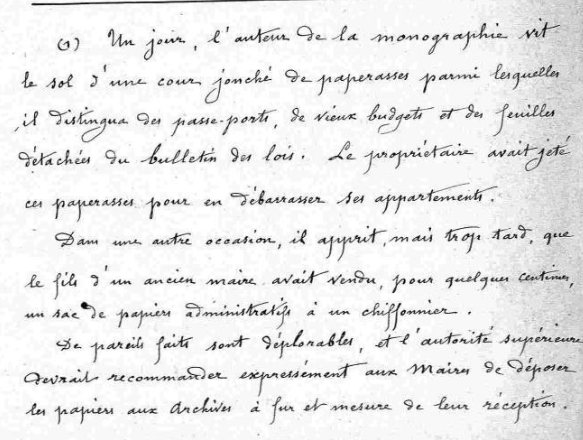 (1) Un jour, l'auteur de la monographie vit
le sol d'une cour jonché de paperasses parmi lesquelles
il distingua des passe-ports, de vieux budgets et des feuilles
détachées du bulletin des lois. Le propriétaire avait jeté
ces paperasses pour en débarrasser ses appartements.
Dans une autre occasion, il apprit, mais trop tard, que
le fils d'un ancien maire avait vendu, pour quelques centimes,
un sac de papiers administratifs à un chiffonnier.
De pareils faits sont déplorables, et l'autorité supérieure
devrait recommander expressément aux Maires de déposer
les papiers aux Archives à fur et mesure de leur réception.